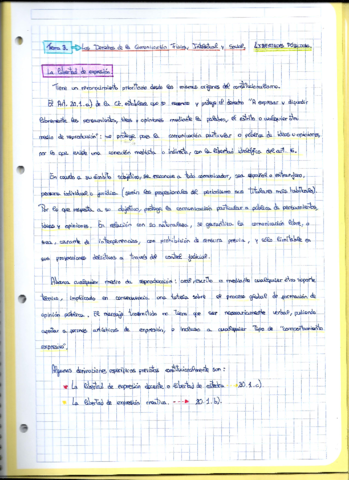 Tema 8. Los Derechos de la Comunicación Física, Intelectual y Social, LIBERTADES PÚBLICAS.
La libertad de expresión
Tiene un reconocimiento prioritario desde los mismos orígenes del constitucionalismo.
El Art. 20.1.a) de la CE establece que se reconoce y protege el derecho "A expresar y difundir
libremente los pensamientos, ideas y opiniones mediante la palabra, el escrito o cualquier otro
medio de reproducción": se protege pues la comunicación particular o pública de ideas u opiniones,
por lo que existe una conexión mediata o indirecta, con la libertad ideológica del art. 16.
En cuanto a su ámbito subjetivo, se reconoce a todo comunicador, sea español o extranjero,
persona individual o jurídica (serán los profesionales del periodismo sus titulares más habituales).
Por lo que respecta a su objetivo, protege la comunicación particular o pública de pensamientos,
ideas y opiniones. En relación con su naturaleza, se garantiza la comunicación libre, o
sea, carente de interferencias, con prohibición de censura previa, y sólo limitable en
sus proyecciones delictivas a través del control judicial.
Abarca cualquier medio de reproducción: oral, escrito o mediante cualquier otro soporte
técnico, implicando en consecuencia una tutela sobre el proceso global de formación de
opinión pública. El mensaje transmitido no tiene que ser necesariamente verbal, pudiendo
apelar a formas artísticas de expresión, o incluso a cualquier tipo de "comportamiento
expresivo".
Algunas derivaciones específicas previstas constitucionalmente son:
La libertad de expresión docente o libertad de cátedra 20.1.c).
La libertad de expresión creativa. 20.1.b).